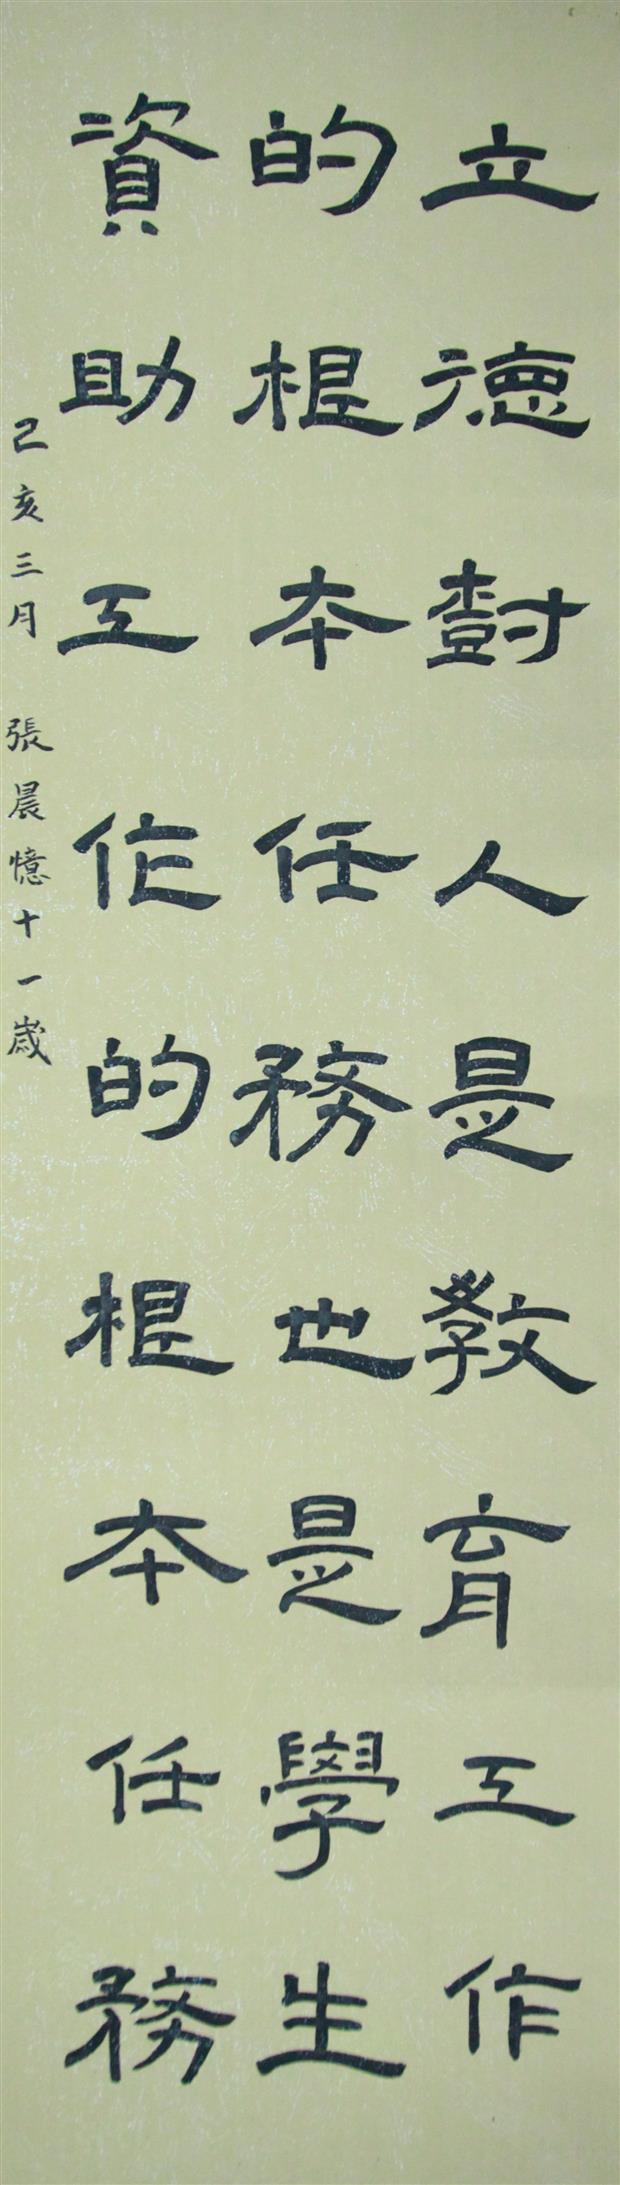 立德樹人是教育工作
的根本任務也是學生
資助工作的根本任務
己亥三月 張晨憶十一歲